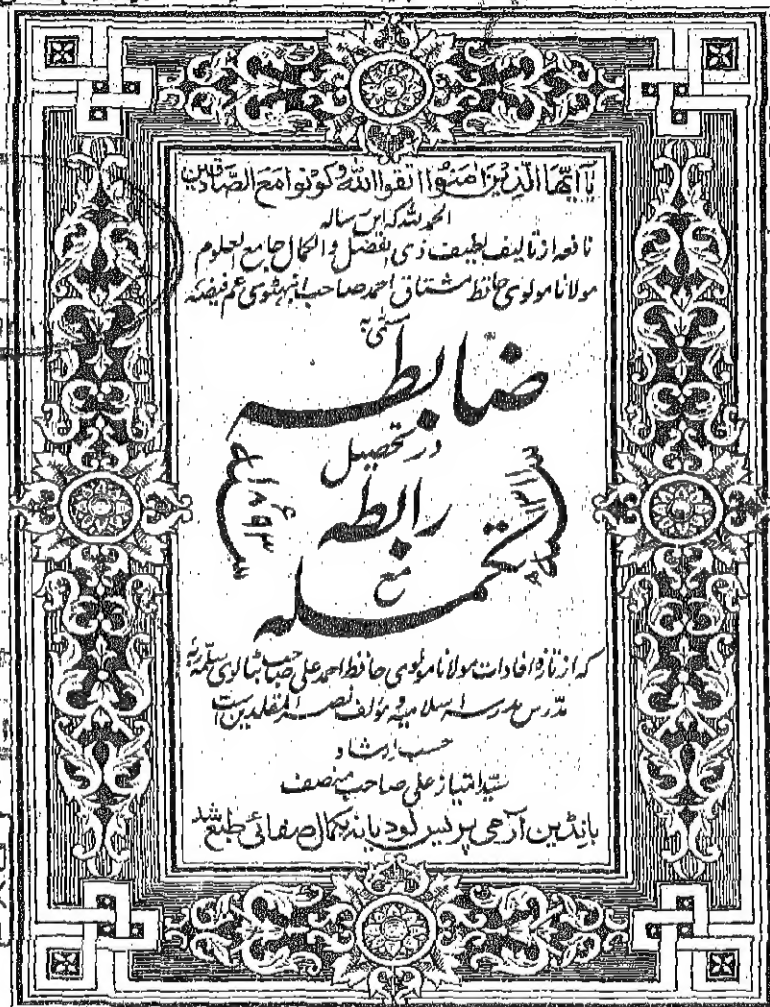 یا ایها الذین امنوا اتقوا الله و کونوا مع الصادقین
الحمد لله که این رساله
نافعه از تالیف لطیف ذی الفضل والکمال جامع العلوم
مولانا مولوی حافظ مشتاق احمد صاحب انبهٹوی عم فیضه
مسمی به
ضابطه
در تحصیل
رابطه
۱۸۹۳
مع
تکمله
که از تازه افادات مولانا مولوی حافظ احمد علی صاحب بٹالوی سلمه ربه
مدرس مدرسه اسلامیه و مؤلف نصرة المقلدین است
حسب ارشاد
سید امتیاز علی صاحب منصف
بانڈین آرمی پریس لودیانه بکمال صفائی طبع شد